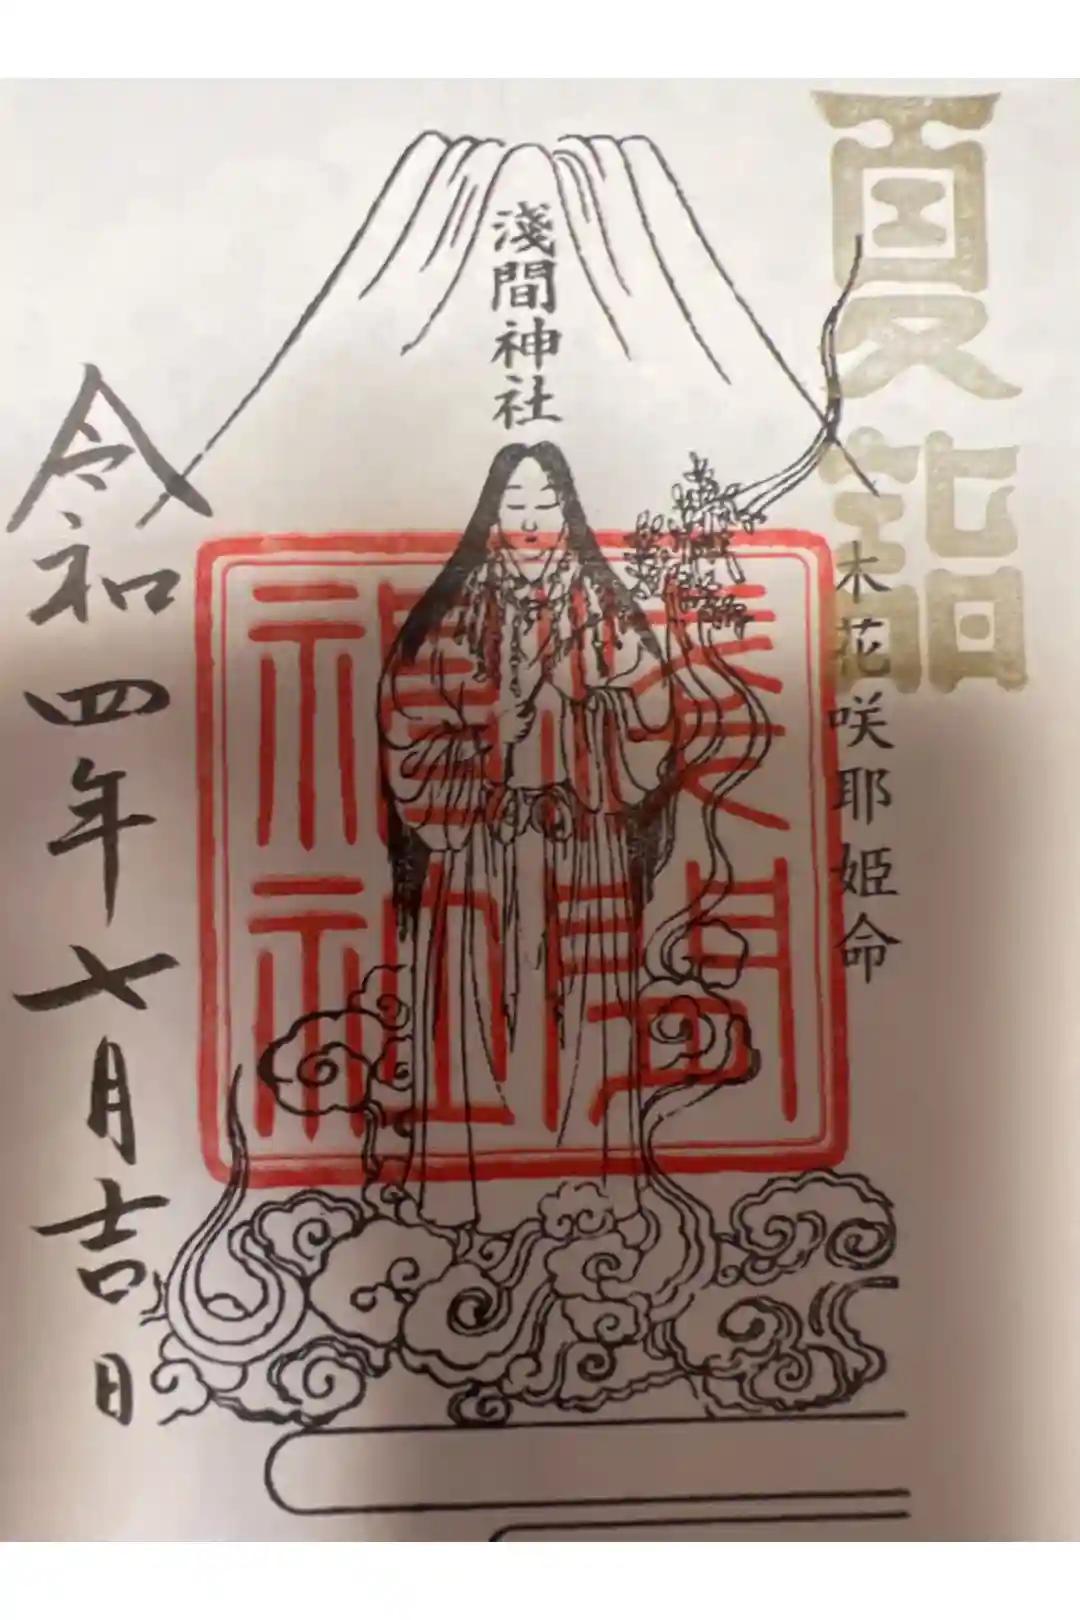 夏詣
木花咲耶姫命
淺間神社
淺間
神社
令和四年七月吉日